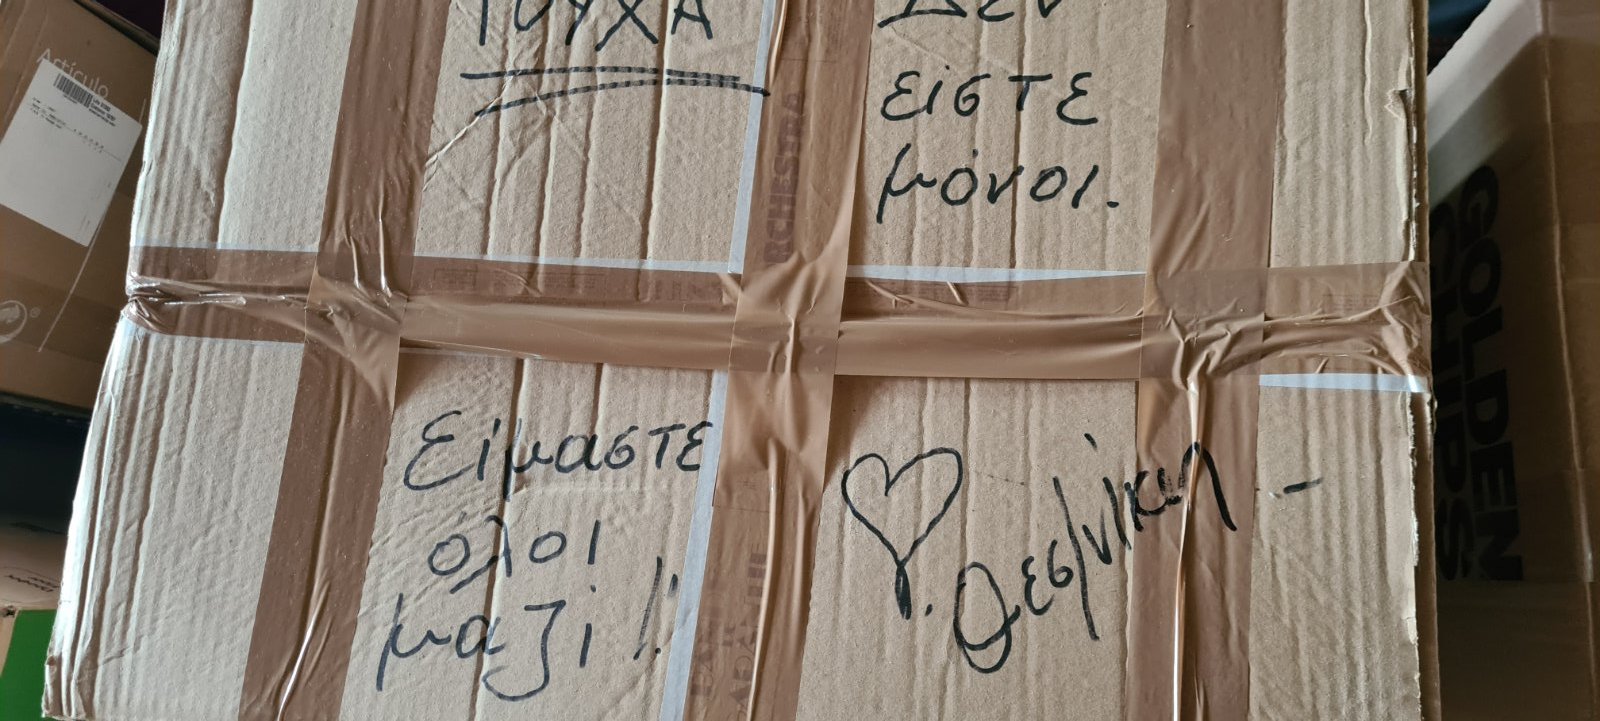 ΡΟΥΧΑ
Δεν
είστε
μόνοι.
Είμαστε
όλοι
μαζί!!
Θεσ/νίκη
Artículo
GOLDEN
CHIPS